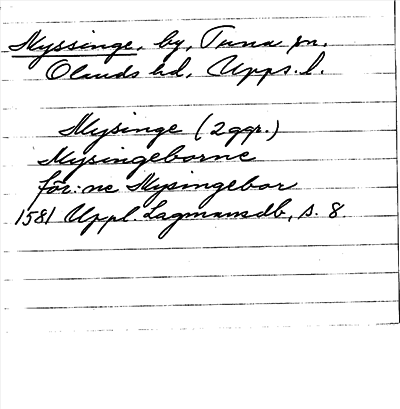 Myssinge, by, Tuna sn.
Olands hd, Upps. l.
Mysinge (2 ggr.)
Mysingeborne
för:ne Mysingebor
1581 Uppl. Lagmansdb, s. 8.